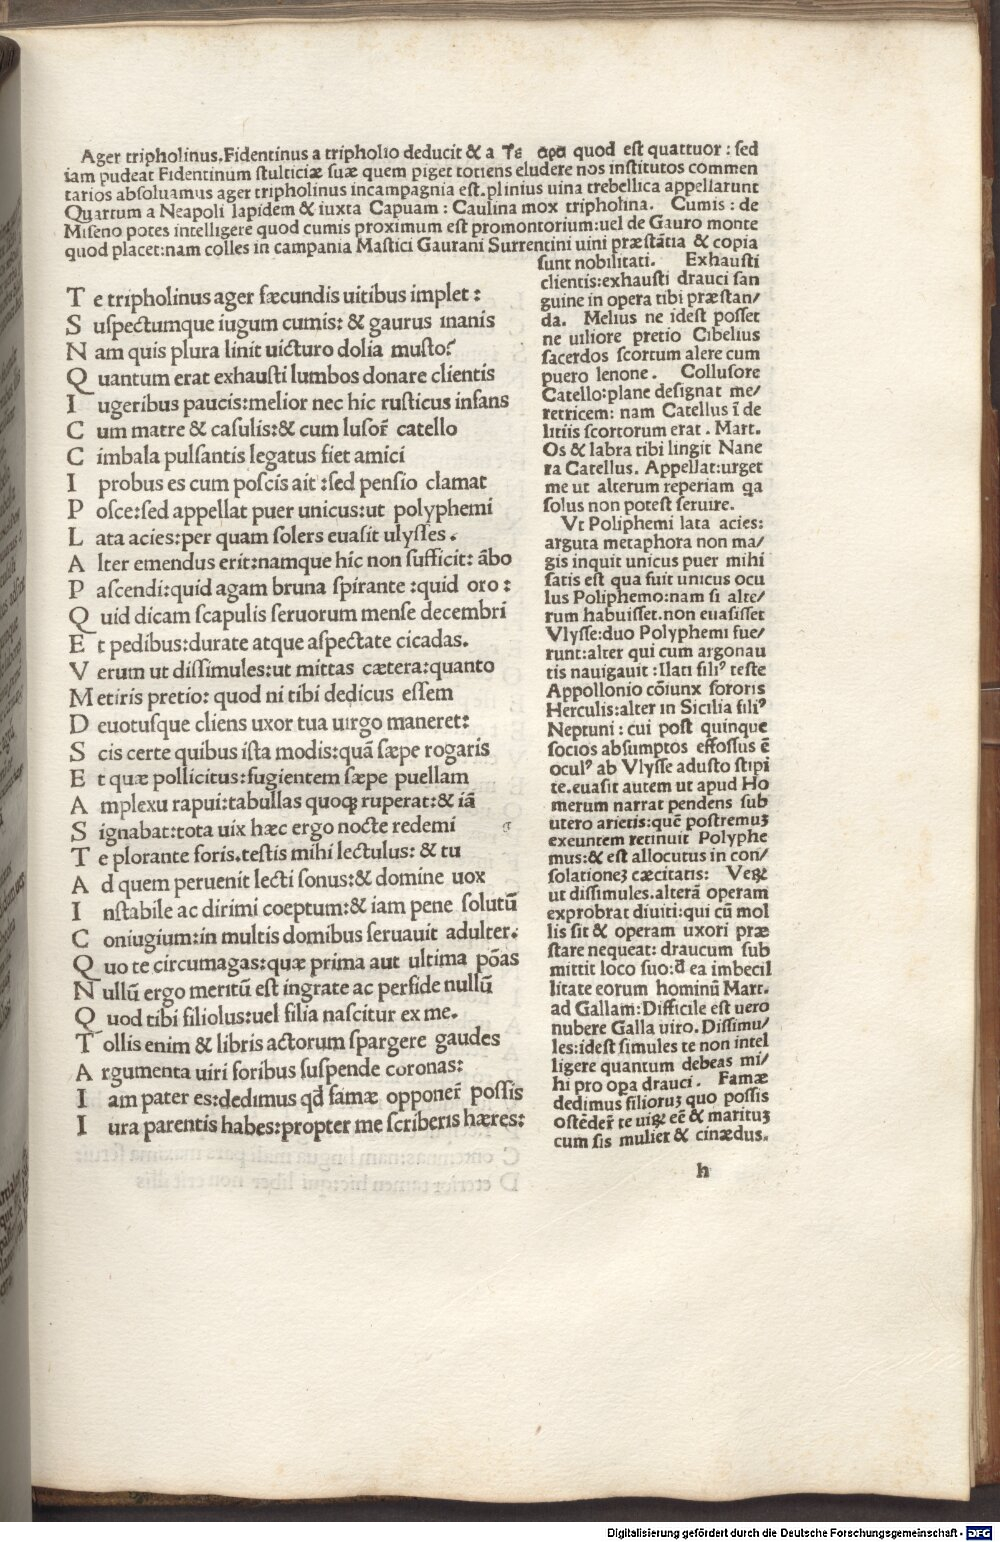 Ager tripholinus. Fidentinus a tripholio deducit & a quod est quattuor : sed
iam pudeat Fidentinum stulticiæ suæ quem piget totiens eludere nos institutos commen
tarios absoluamus ager tripholinus incampagnia est. plinius uina trebellica appellarunt
Quartum a Neapoli lapidem & iuxta Capuam : Caulina mox tripholina. Cumis : de
Miseno potes intelligere quod cumis proximum est promontorium: uel de Gauro monte
quod placet: nam colles in campania Mastici Gaurani Surrentini uini præstātia & copia
sunt nobilitati. Exhausti
clientis: exhausti drauci san
guine in opera tibi præstan/
da. Melius ne idest posset
ne uiliore pretio Cibelius
sacerdos scortum alere cum
puero lenone. Collusore
Catello: plane designat me/
retricem: nam Catellus ī de
litiis scortorum erat . Mart.
Os & labra tibi lingit Nane
ra Catellus. Appellat: urget
me ut alterum reperiam qa
solus non potest seruire.
Vt Poliphemi lata acies:
arguta metaphora non ma/
gis inquit unicus puer mihi
satis est qua fuit unicus ocu
lus Poliphemo: nam si alte/
rum habuisset. non euasisset
Vlysse: duo Polyphemi fue/
runt: alter qui cum argonau
tis nauigauit : Ilati filiꝰ teste
Appollonio cōiunx sororis
Herculis: alter in Sicilia filiꝰ
Neptuni : cui post quinque
socios absumptos effossus ē
oculꝰ ab Vlysse adusto stipi
te. euasit autem ut apud Ho
merum narrat pendens sub
utero arietis: quē postremuꝫ
exeuntem retinuit Polyphe
mus: & est allocutus in con/
solationeꝫ cæcitatis: Veꝝ
ut dissimules. alterā operam
exprobrat diuiti: qui cū mol
lis sit & operam uxori præ
stare nequeat: draucum sub
mittit loco suo: đ ea imbecil
litate eorum hominū Mart.
ad Gallam: Difficile est uero
nubere Galla uiro. Dissimu/
les: idest simules te non intel
ligere quantum debeas mi/
hi pro opa drauci . Famæ
dedimus filioruꝫ quo possis
ostēder̄ te uiꝝ eē & marituꝫ
cum sis mulier & cinædus.
T e tripholinus ager fæcundis uitibus implet :
S uspectumque iugum cumis: & gaurus inanis
N am quis plura linit uicturo dolia musto?
Q uantum erat exhausti lumbos donare clientis
I ugeribus paucis: melior nec hic rusticus infans
C um matre & casulis: & cum lusor̄ catello
C imbala pulsantis legatus fiet amici
I probus es cum poscis ait : sed pensio clamat
P osce: sed appellat puer unicus: ut polyphemi
L ata acies: per quam solers euasit ulysses .
A lter emendus erit: namque hic non sufficit: ābo
P ascendi: quid agam bruna spirante : quid oro :
Q uid dicam scapulis seruorum mense decembri
E t pedibus: durate atque aspectate cicadas.
V erum ut dissimules: ut mittas cætera: quanto
M etiris pretio: quod ni tibi dedicus essem
D euotusque cliens uxor tua uirgo maneret:
S cis certe quibus ista modis: quā sæpe rogaris
E t quæ pollicitus: fugientem sæpe puellam
A mplexu rapui: tabullas quoqꝫ ruperat: & iā
S ignabat: tota uix hæc ergo nocte redemi
T e plorante foris. testis mihi lectulus: & tu
A d quem peruenit lecti sonus: & domine uox
I nstabile ac dirimi coeptum: & iam pene solutū
C oniugium: in multis domibus seruauit adulter.
Q uo te circumagas: quæ prima aut ultima pōas
N ullū ergo meritū est ingrate ac perfide nullū
Q uod tibi filiolus: uel filia nascitur ex me.
T ollis enim & libris actorum spargere gaudes
A rgumenta uiri foribus suspende coronas:
I am pater es: dedimus qđ famæ opponer̄ possis
I ura parentis habes: propter me scriberis hæres:
h
Digitalisierung gefördert durch die Deutsche Forschungsgemeinschaft - DFG